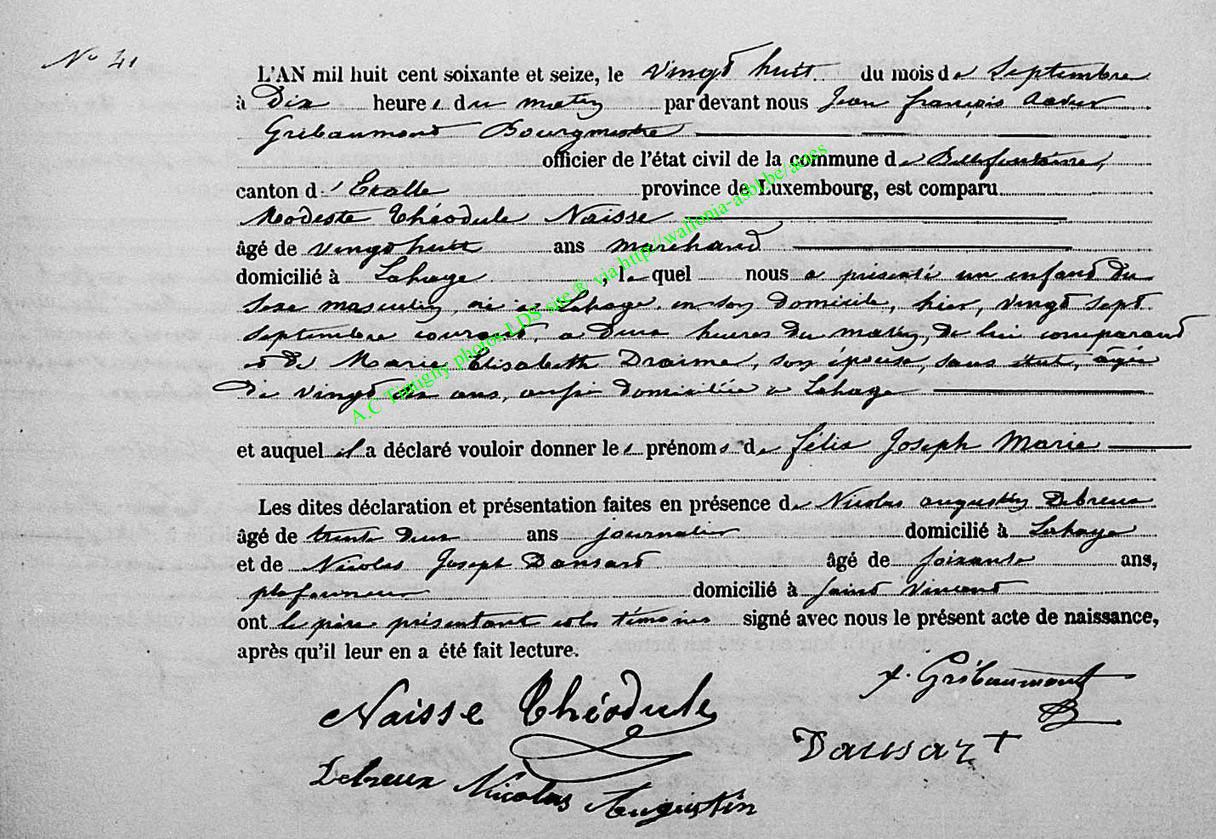 N° 41
L'AN mil huit cent soixante et seize, le vingt huit du mois de Septembre
à Dix heures du matin par devant nous Jean françois
Gribaumont Bourgmestre
officier de l'état civil de la commune de Bellefontaine,
canton d'Etalle province de Luxembourg, est comparu
Modeste Théodule Naisse
âgé de vingt huit ans marchand
domicilié à Lahage, le quel nous a présenté un enfant du
sexe masculin, né à Lahage, en son domicile, hier, vingt sept
septembre courant, à deux heures du matin, de lui comparant
et de Marie Elisabeth Draime, son épouse, sans état, âgée
de vingt six ans, aussi domiciliée à Lahage
et auquel il a déclaré vouloir donner les prénoms de félix Joseph Marie
Les dites déclaration et présentation faites en présence de Nicolas augustin Debreux
âgé de trente deux ans journalier domicilié à Lahage
et de Nicolas Joseph Dausart âgé de soixante ans,
plafonneur domicilié à saint Vincent
ont le père présentant et les témoins signé avec nous le présent acte de naissance,
après qu'il leur en a été fait lecture.
f. Gribaumont
Naisse Théodule
Dausart
Debreux Nicolas Augustin
A.C Tintigny photos LDS site & via http://wallonia-asbl.be/asnes